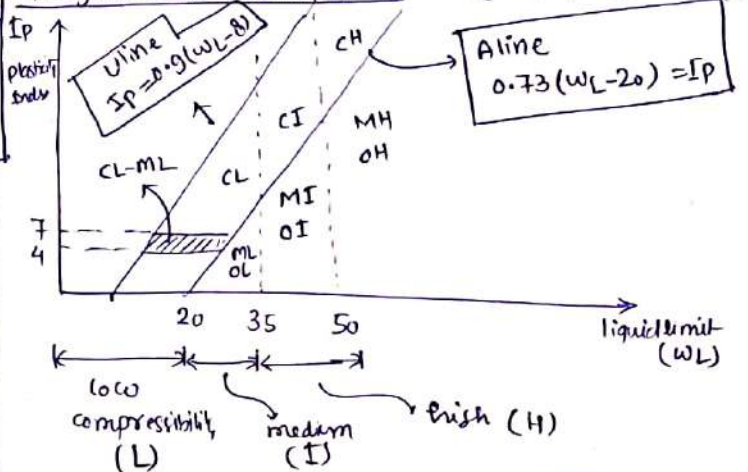 Ip
plasticity
Index
Uline
Ip=0.9(WL-8)
CH
Aline
0.73(WL-20) =Ip
CI
MH
OH
CL-ML
CL
MI
OI
7
4
ML
OL
20 35 50
liquid limit
(WL)
low
compressibility
(L)
medium
(I)
high (H)